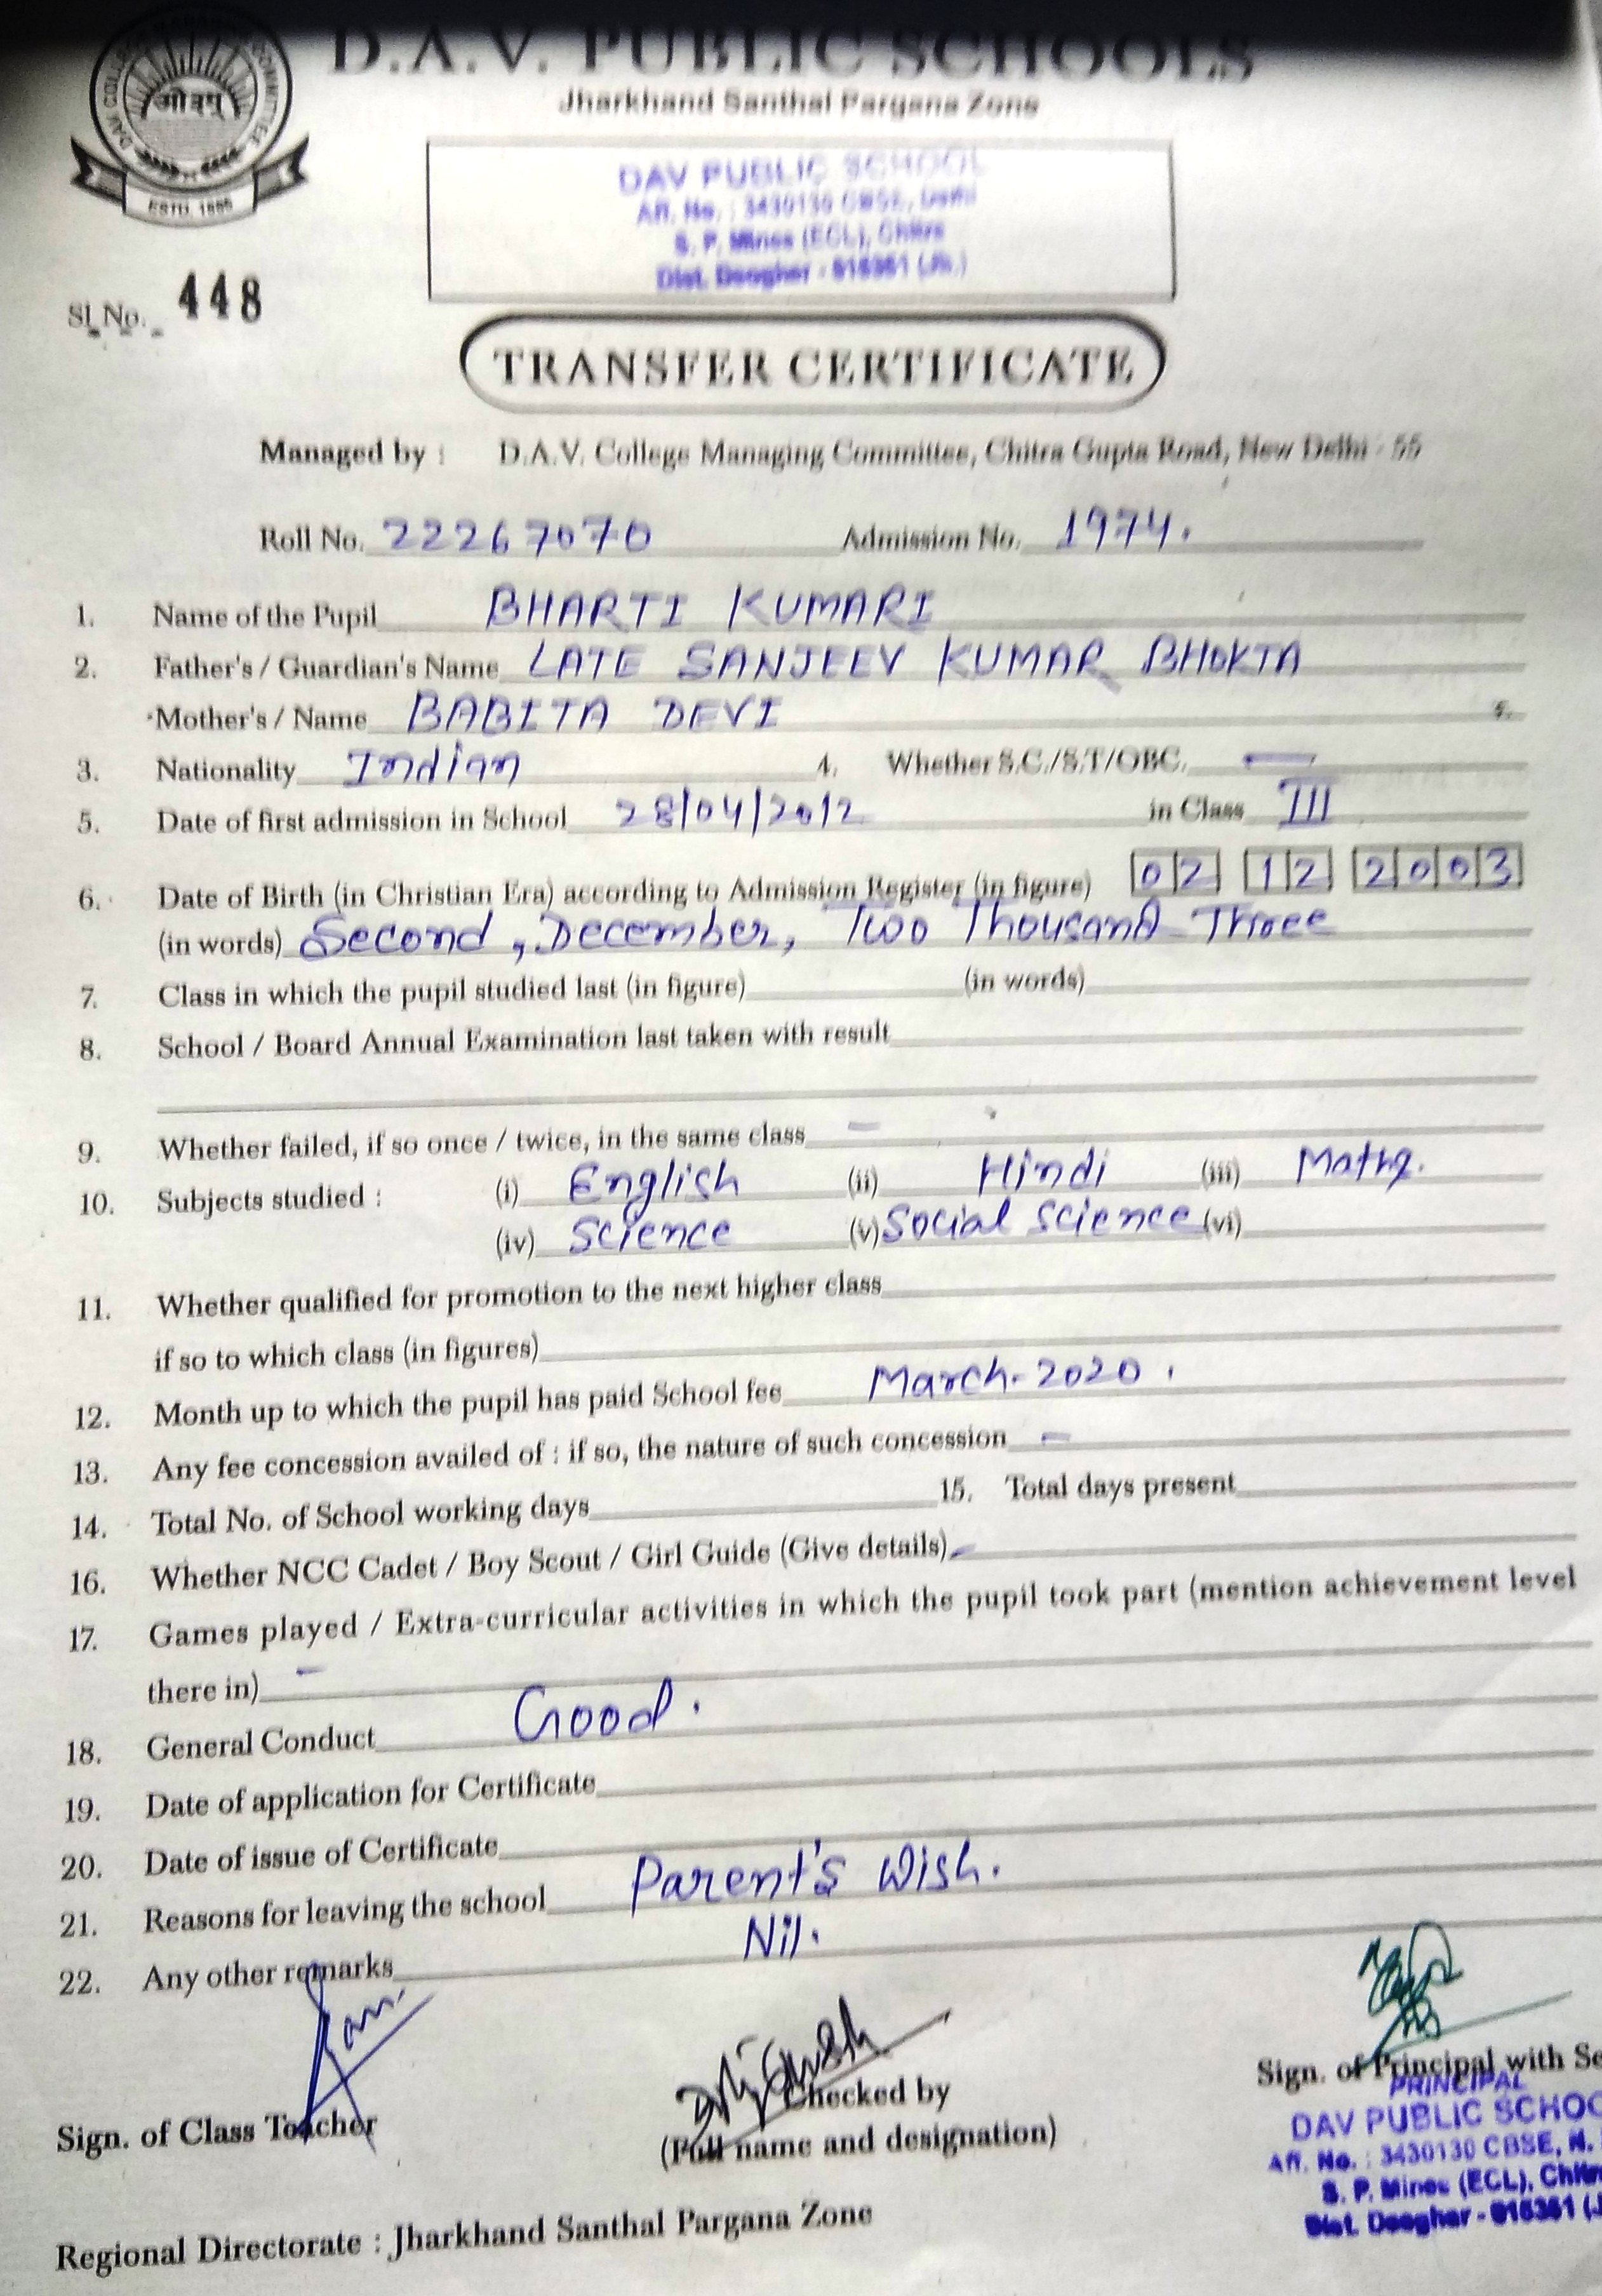 D.A.V. PUBLIC SCHOOLS
Jharkhand Santhal Pargana Zone
ESTD. 1886
DAV PUBLIC SCHOOL
Aff. No. : 3430130 CBSE, Delhi
S. P. Mines (ECL), Chitra
Dist. Deoghar - 815351 (Jh.)
Sl. No. 448
TRANSFER CERTIFICATE
Managed by : D.A.V. College Managing Committee, Chitra Gupta Road, New Delhi - 55
Roll No. 22267070 Admission No. 1974.
1. Name of the Pupil BHARTI KUMARI
2. Father's / Guardian's Name LATE SANJEEV KUMAR BHOKTA
Mother's / Name BABITA DEVI
3. Nationality Indian 4. Whether S.C./S.T/OBC. —
5. Date of first admission in School 28/04/2012 in Class III
6. Date of Birth (in Christian Era) according to Admission Register (in figure) 02 12 2003
(in words) Second, December, Two Thousand Three
7. Class in which the pupil studied last (in figure) (in words)
8. School / Board Annual Examination last taken with result
9. Whether failed, if so once / twice, in the same class —
10. Subjects studied : (i) English (ii) Hindi (iii) Maths.
(iv) Science (v) Social Science (vi)
11. Whether qualified for promotion to the next higher class
if so to which class (in figures)
12. Month up to which the pupil has paid School fee March-2020.
13. Any fee concession availed of : if so, the nature of such concession —
14. Total No. of School working days 15. Total days present
16. Whether NCC Cadet / Boy Scout / Girl Guide (Give details) -
17. Games played / Extra-curricular activities in which the pupil took part (mention achievement level
there in) -
18. General Conduct Good.
19. Date of application for Certificate
20. Date of issue of Certificate
21. Reasons for leaving the school Parent's Wish.
22. Any other remarks Nil.
Sign. of Class Teacher
Checked by
(Full name and designation)
Sign. of Principal with Se
PRINCIPAL
DAV PUBLIC SCHOO
Aff. No. : 3430130 CBSE, N.
S. P. Mines (ECL), Chitra
Dist. Deoghar - 815351 (J
Regional Directorate : Jharkhand Santhal Pargana Zone